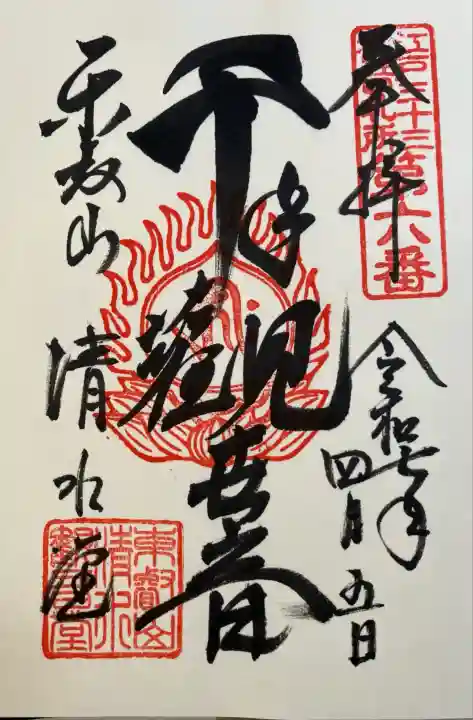 奉拝
江戸三十三
札所第六番
令和七年
四月五日
千手觀世音
東叡山
清水堂
東叡山
清水
観音堂